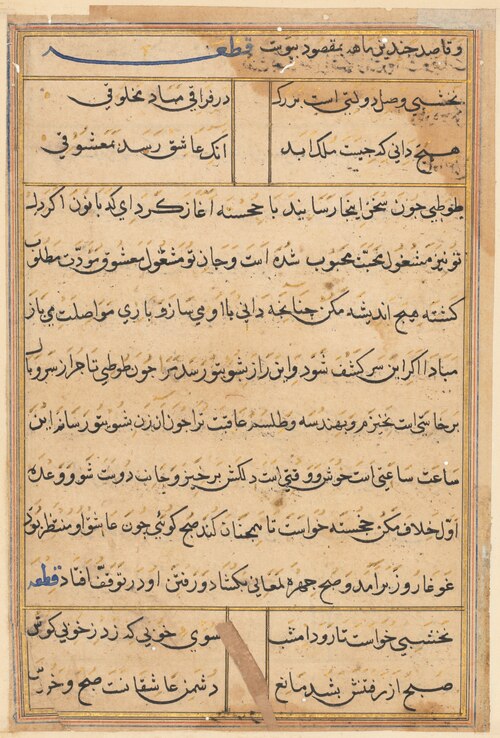 و قاصد چندین ماهه بمقصود پیوست قطعه
نخشبی وصل دولتی است بزرک در فراقی مباد مخلوقی
هیچ دانی که چیست ملک ابد انک عاشق رسد بمعشوقی
طوطی چون سخن اینجا رسانید با خجسته آغاز کرد ای کدبانو اکر دل
تو نیز مشغول محبت محبوب شده است و جان تو مشغول معشوق و مودت مطلوب
کشته هیچ اندیشه مکن چنانچه دانی با او می ساز و با وی مواصلت می باز
مبادا اکر این سر کشف شود و این راز بشوی تو رسد مرا چون طوطی تاجر از سر و بال
بر خاستی است بخیزم و بهندسه و طلسم عاقبت ترا چون ان زن بشوی تو رسانم این
ساعت ساعتی است خوش و وقتی است دلکش برخیز و جانب دوست شو و وعده
اول خلاف مکن خجسته خواست تا همچنان کند صبح کوئی چون عاشق او منتظر بود
غوغا روز برآمد و صبح چهره لمعانی بکشاد و رفتن او در توقف افتاد قطعه
نخشبی خواست تا رود امشب سوی خوبی که زد ز خوبی کوش
صبح از رفتنش بشد مانع دشمن عاشقانست صبح و خروس